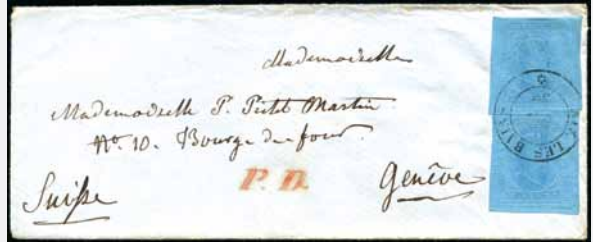 Mademoiselle
Mademoiselle P. Pictet Martin
No. 10. Bourg de four.
P. D.
Suisse
Genève
LES BAINS